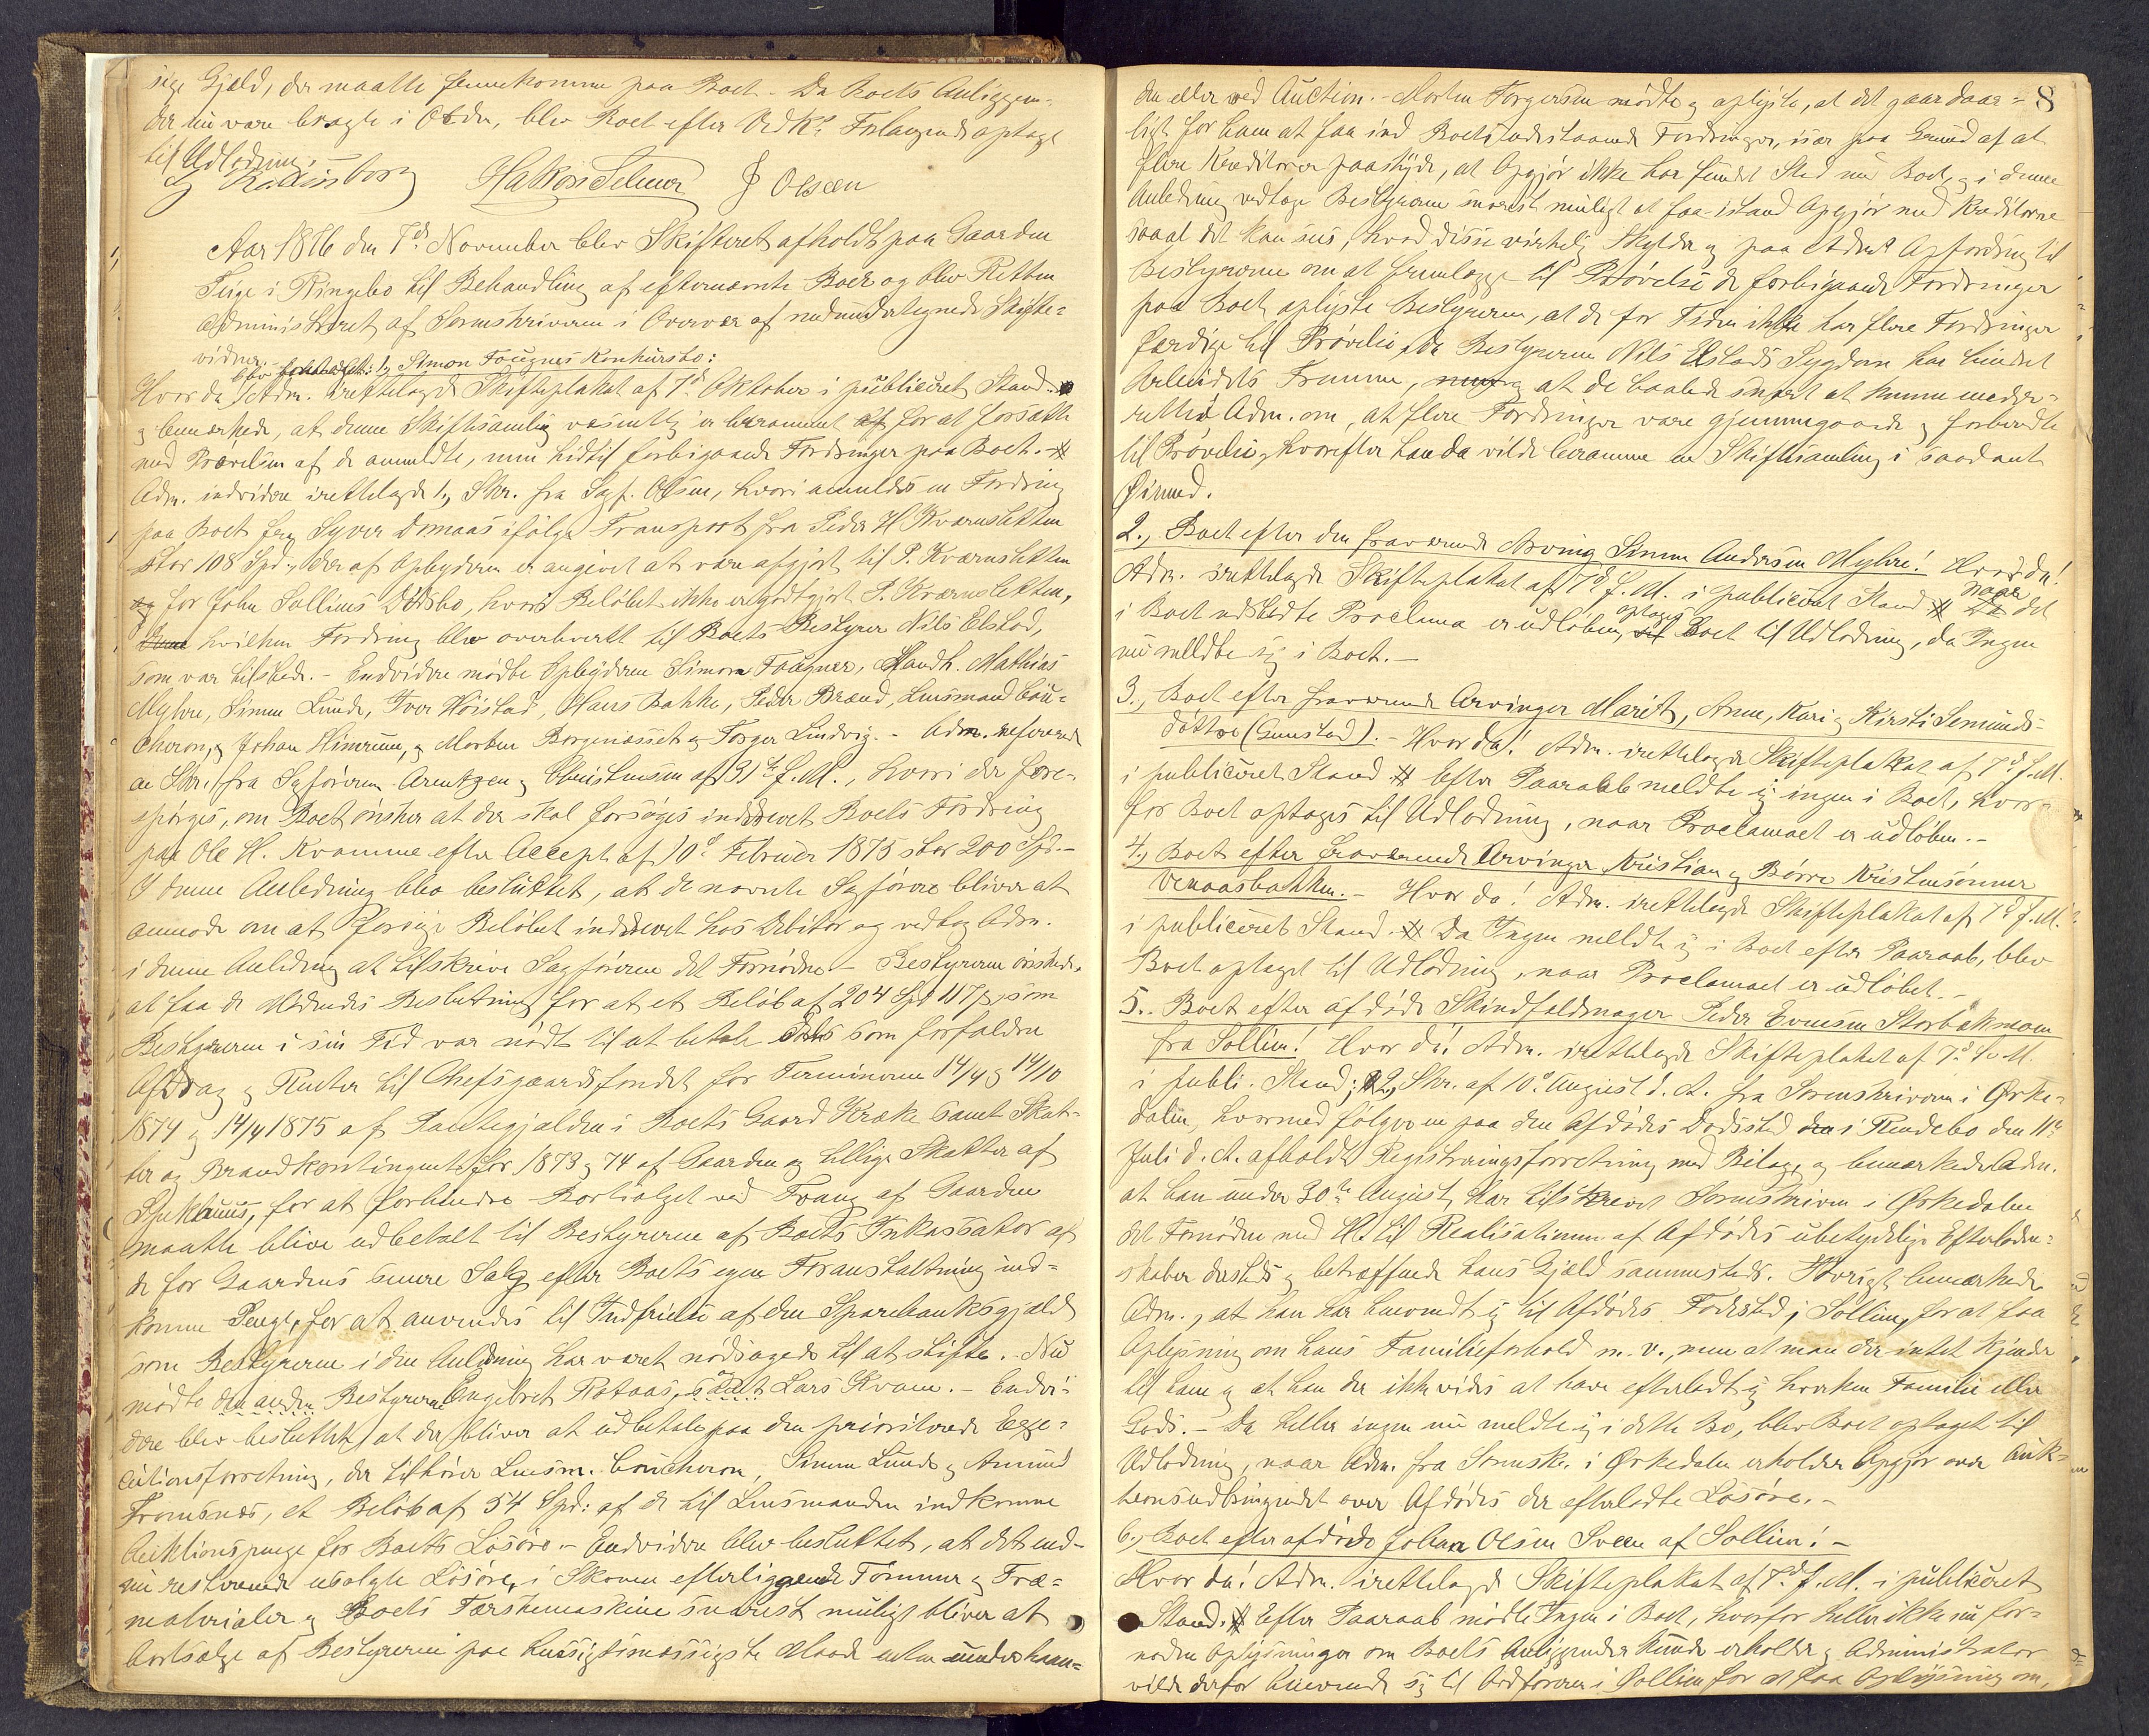 sige Gjæld, der maatte fremkomme paa Boet. - Da Boets Anliggen-
der nu vare bragte i Orden, blev Boet efter Vedk. Forlangende optaget
til Udlodning.
Hakon Selmer J Olsen
Aar 1876 den 7de November blev Skifteret afholdt paa Gaarden
Tuge i Ringebo til Behandling af efternævnte Boer og blev Retten
administreret af Sorenskriveren i Overvær af nedundertegnede Skifte-
vidner.
blev foretaget: 1, Simon Fougnes Konkursbo:
Hvorda! Adm. irettelagde Skifteplakat af 7d Oktober i publiceret Stand.
og bemærkede, at denne Skiftesamling væsentlig er berammet for at forsætte
med Prøvelsen af de anmeldte, men hidtil forbigaaede Fordringer paa Boet. #
Adm. endvidere irettelagde 1, Skr. fra Sagf. Olsen, hvori anmeldes en Fordring
paa Boet fra Syver Domaas ifølge Transport fra Peder H Kvernsletten
stor 108 Spd., der af Opbyderen er angivet at være afgjort til P. Kvernsletten
for John Sollius Dødsbo, hvori Beløbet ikke er godtgjort P. Kvernsletten,
hvilken Fordring blev overhvertt til Boets Bestyrer Nils Elstad,
som var tilstede. - Endvidere mødte Opbyderen Simon Fougner, Handh. Mathias
Myhre, Simen Lunde, Iver Høistad, Hans Bakke, Peder Brænd, Lensmand Cou-
cheron, & Johan Himrum, & Morten Borgenasset & Torger Lindvig. - Adm. refererede
en Skr. fra Sagførerne Arentzen & Christensen af 31te f. M., hvori der fore-
spørges, om Boet ønsker at der skal forsøges inddrevet Boets Fordring
paa Ole H. Kvamme efter Accept af 10d Februar 1875 stor 200 Spd. -
I denne Anledning blev besluttet, at de nævnte Sagførere bliver at
anmode om at forsøge Beløbet inddrevet hos Debitor og vedtog Adm.
i denne Anledning at tilskrive Sagførerne det Fornødne. - Bestyrerne ønskede
at faa de Mødendes Beslutning for at et Beløb af 204 Spd 117 s, som
Bestyrerne i sin Tid var nødt til at betale som forfaldne
Afdrag & Renter til Opfostringsfondet for Terminerne 14/4 & 14/10
1874 & 14/4 1875 af Pantegjælden i Boets Gaard Krøke samt Skat-
ter og Brandkontingent for 1873 & 74 af Gaarden & tillige Skatter af
for at forhindre Bortsalget ved Tvang af Gaarden
maatte blive udbetalt til Bestyrerne af Boets Inkassator af
de for Gaardens senere Salg efter Boets egen Foranstaltning ind-
komne Penge, for at anvendes til Indfrielse af den Sparebanksgjæld
som Bestyrerne i den Anledning har været nødsagede til at stifte. - Nu
mødte den anden Bestyrer Engebret Rotaas, samt Lars Kvam. - Endvi-
dere blev besluttet, at der bliver at udbetale paa den prioriterede Exe-
cutionsforretning, der tilhører Lensm. Coucheron, Simen Lunde & Amund
Tromsnes, et Beløb af 54 Spd. af de til Lensmanden indkomne
Auktionspenge for Boets Løsøre. - Endvidere blev besluttet, at det end-
nu resterende usolgte Løsøre, i Skoven efterliggende Tømmer & Træ-
materialer & Boets Tærskemaskine snarest muligt bliver at
bortsælge af Bestyrerne paa hensigtsmæssigste Maade enten underhaan-
8
den eller ved Auction. - Morten Torgersen mødte & oplyste, at det gaar daar-
ligt for ham at faa ind Boets udestaaende Fordringer, især paa Grund af at
flere Kreditorer paaskyde, at Opgjør ikke har fundet Sted med Boet, & i denne
Anledning vedtoge Bestyrerne snarest muligt at faa istand Opgjør med Kreditorerne
saa at det kan sees, hvad disse virkelig skylder & paa Adms Opfordring til
Bestyrerne om at fremlægge til Prøvelse de forbigaaede Fordringer
paa Boet oplyste Bestyrerne, at de for Tiden ikke har flere Fordringer
færdige til Prøvelse, da Bestyreren Nils Elstads Sygdom har hindret
Arbeidets Fremme, at de haabede snart at kunne under-
rette Adm. om, at flere Fordringer vare gjennemgaaede & forberedte
til Prøvelse, hvorefter han da vilde beramme en Skiftesamling i saadant
Øiemed.
2., Boet efter den fraværende Arving Simen Andersen Myhre! Hvorda!
Adm. irettelagde Skifteplakat af 7d f. M. i publiceret Stand # naar det
i Boet udstedte Proclama er udløben, optages Boet til Udlodning, da Ingen
nu meldte sig i Boet. -
3., Boet efter fraværende Arvinger Marit, Anne, Kari & Kirsti Semunds-
døttre (Gunstad). - Hvorda! Adm. irettelagde Skifteplakat af 7d f. M.
i publiceret Stand # Efter Paaraab meldte sig ingen i Boet, hvor-
for Boet optages til Udlodning, naar Proclamaet er udløben. -
4., Boet efter fraværende Arvinger Kristian & Børre Kristensønner
Venaasbakken. - Hvorda! Adm. irettelagde Skifteplakat af 7d f. M.
i publiceret Stand. # Da Ingen meldte sig i Boet efter Paaraab, blev
Boet optaget til Udlodning, naar Proclamaet er udløbet. -
5., Boet efter afdøde Skindfeldmager Peder Evensen Storbækmoen
fra Sollien! Hvorda! Adm. irettelagde Skifteplakat af 7d f. M.
i publi. Stand; 2, Skr. af 10d August d. A. fra Sorenskriveren i Ørke-
dalen, hvormed følger en paa den Afdødes Dødssted i Rendebo den 11te
Juli d. A. afholdt Registreringsforretning med Bilage, og bemærkede Adm.
at han under 30te August har tilskrevet Sorenskriveren i Ørkedalen
det Fornødne med H. t. til Realisationen af Afdødes ubetydelige Efterladen-
skaber dersteds & betræffende hans Gjæld sammesteds. Iøvrigt bemærkede
Adm., at han har henvendt sig til Afdødes Fødested i Sollien, for at faa
Oplysning om hans Familieforhold m. v., men at man der intet kjender
til ham & at han der ikke vides at have efterladt sig hverken Familie eller
Gods. - Da heller ingen nu meldte sig i dette Bo, blev Boet optaget til
Udlodning, naar Adm. fra Sorenskr. i Ørkedalen erholder Opgjør over Auk-
tionsudbringendet over Afdødes der efterladte Løsøre. -
6., Boet efter afdøde Johan Olsen Sveen af Sollien! -
Hvorda! Adm. irettelagde Skifteplakat af 7d f. M. i publiceret
Stand. # Efter Paaraab mødte Ingen i Boet, hvorfor heller ikke nu for-
nødne Oplysninger om Boets Anliggender kunde erholdes & Administrator
vilde derfor henvende sig til Ordføreren i Sollien for at faa Oplysning om,